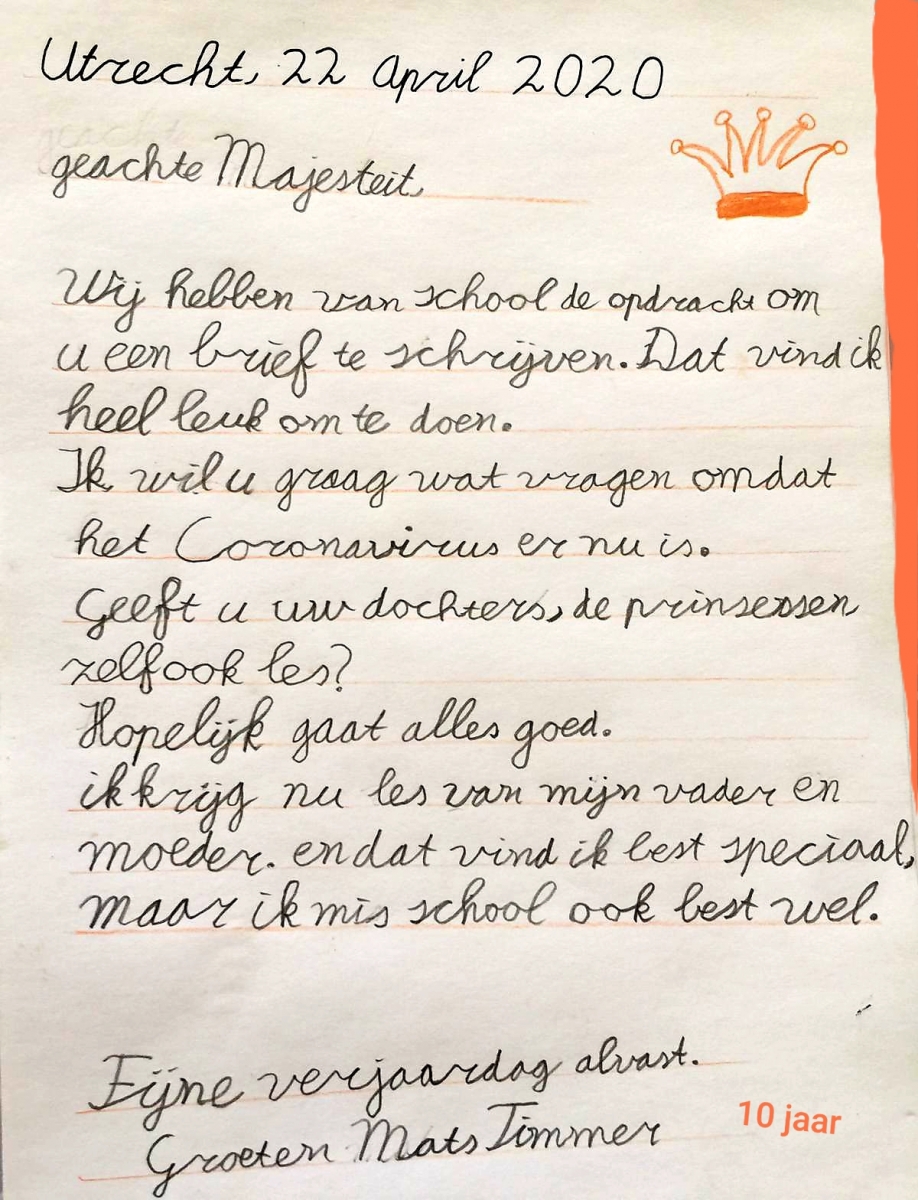 Utrecht, 22 april 2020
geachte Majesteit,
Wij hebben van school de opdracht om
u een brief te schrijven. Dat vind ik
heel leuk om te doen.
Ik wil u graag wat vragen omdat
het Coronavirus er nu is.
Geeft u uw dochters, de prinsessen
zelf ook les?
Hopelijk gaat alles goed.
ik krijg nu les van mijn vader en
moeder. en dat vind ik best speciaal,
maar ik mis school ook best wel.
Fijne verjaardag alvast.
Groeten Mats Timmer
10 jaar